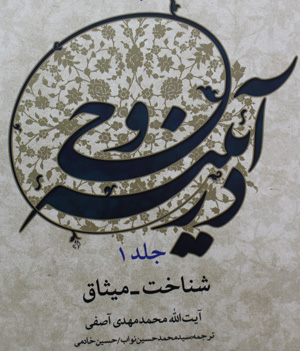 در آینه وحی
جلد ۱
شناخت - میثاق
آیت‌الله محمدمهدی آصفی
ترجمه سیدمحمدحسین نواب/حسین خادمی